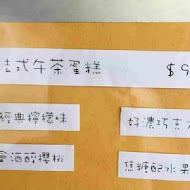 式午茶蛋糕 $
經典檸檬味
好濃巧克
酒醇櫻桃
焦糖配水果